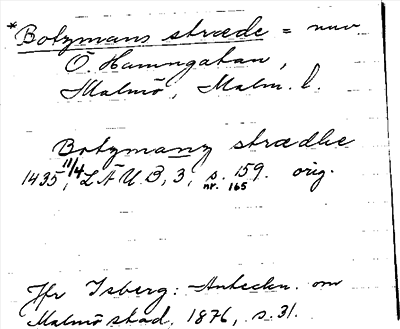 *Botzmans stræde = nuv
Ö. Hamngatan,
Malmö, Malm. l.
Botzmanz strædhe
1435 11/4, LÄUB, 3, s. 159. orig.
nr. 165
Jfr Isberg: Anteckn. om
Malmö stad, 1876, s. 31.